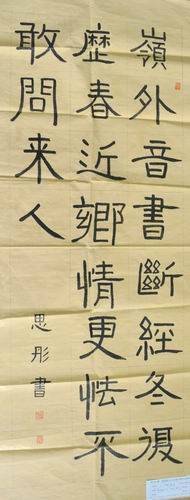 嶺外音書斷經冬復
歷春近鄉情更怯不
敢問来人
思彤書